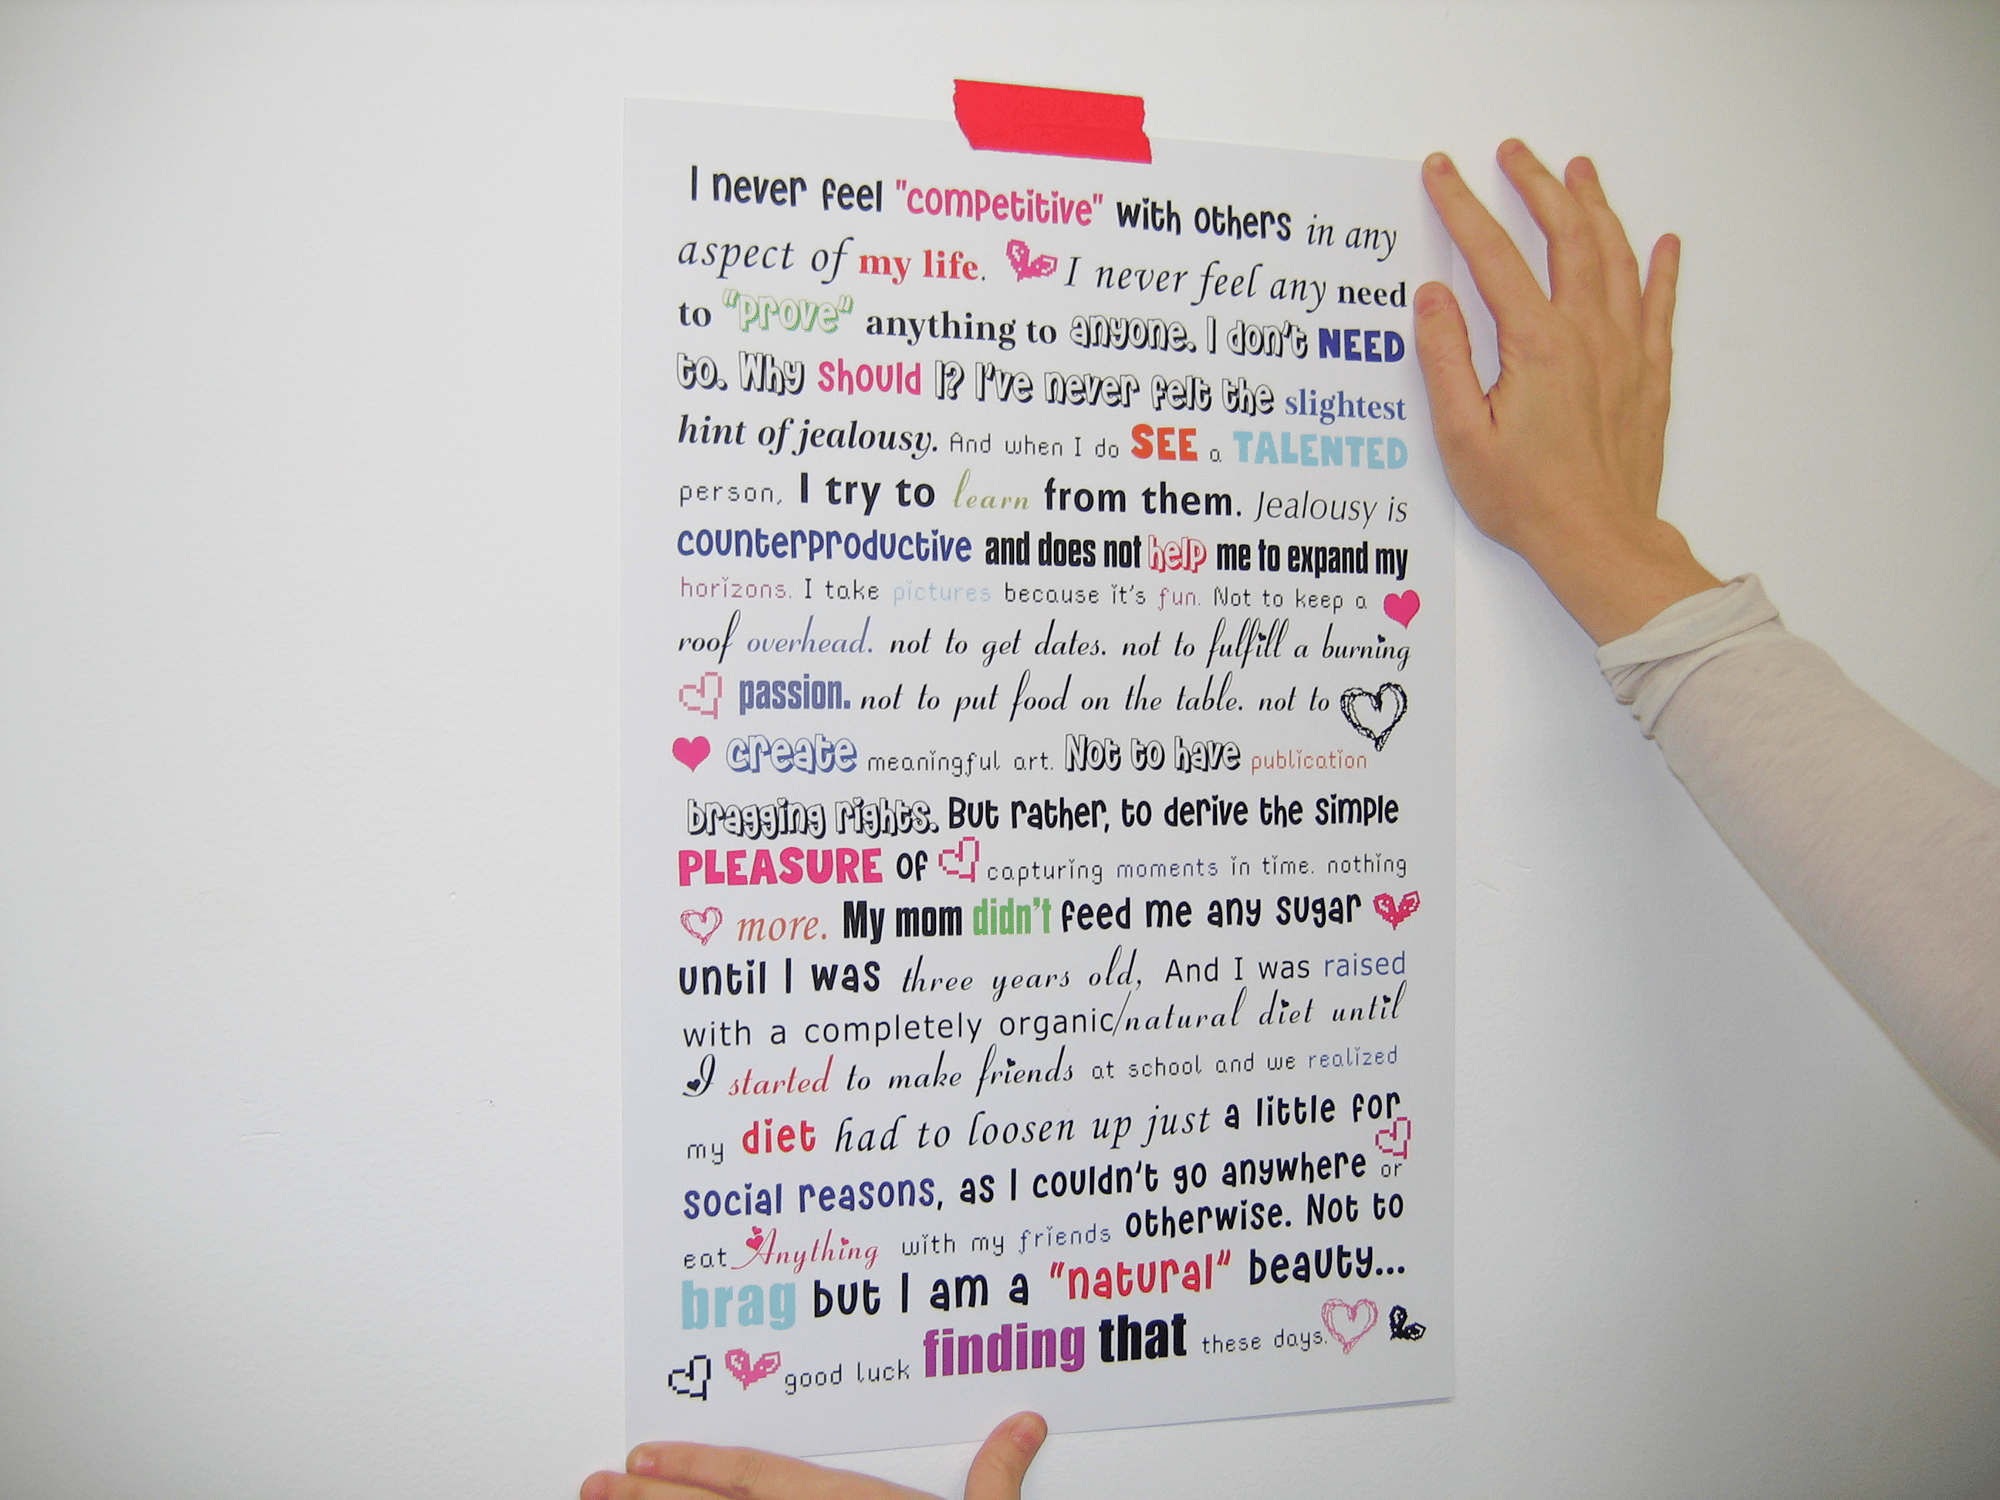 I never feel "competitive" with others in any
aspect of my life. I never feel any need
to "prove" anything to anyone. I don't NEED
to. Why should I? I've never felt the slightest
hint of jealousy. And when I do SEE a TALENTED
person, I try to learn from them. Jealousy is
counterproductive and does not help me to expand my
horizons. I take pictures because it's fun. Not to keep a
roof overhead. not to get dates. not to fulfill a burning
passion. not to put food on the table. not to
create meaningful art. Not to have publication
bragging rights. But rather, to derive the simple
PLEASURE of capturing moments in time. nothing
more. My mom didn't feed me any sugar
until I was three years old, And I was raised
with a completely organic/natural diet until
I started to make friends at school and we realized
my diet had to loosen up just a little for
social reasons, as I couldn't go anywhere or
eat Anything with my friends otherwise. Not to
brag but I am a "natural" beauty...
good luck finding that these days.